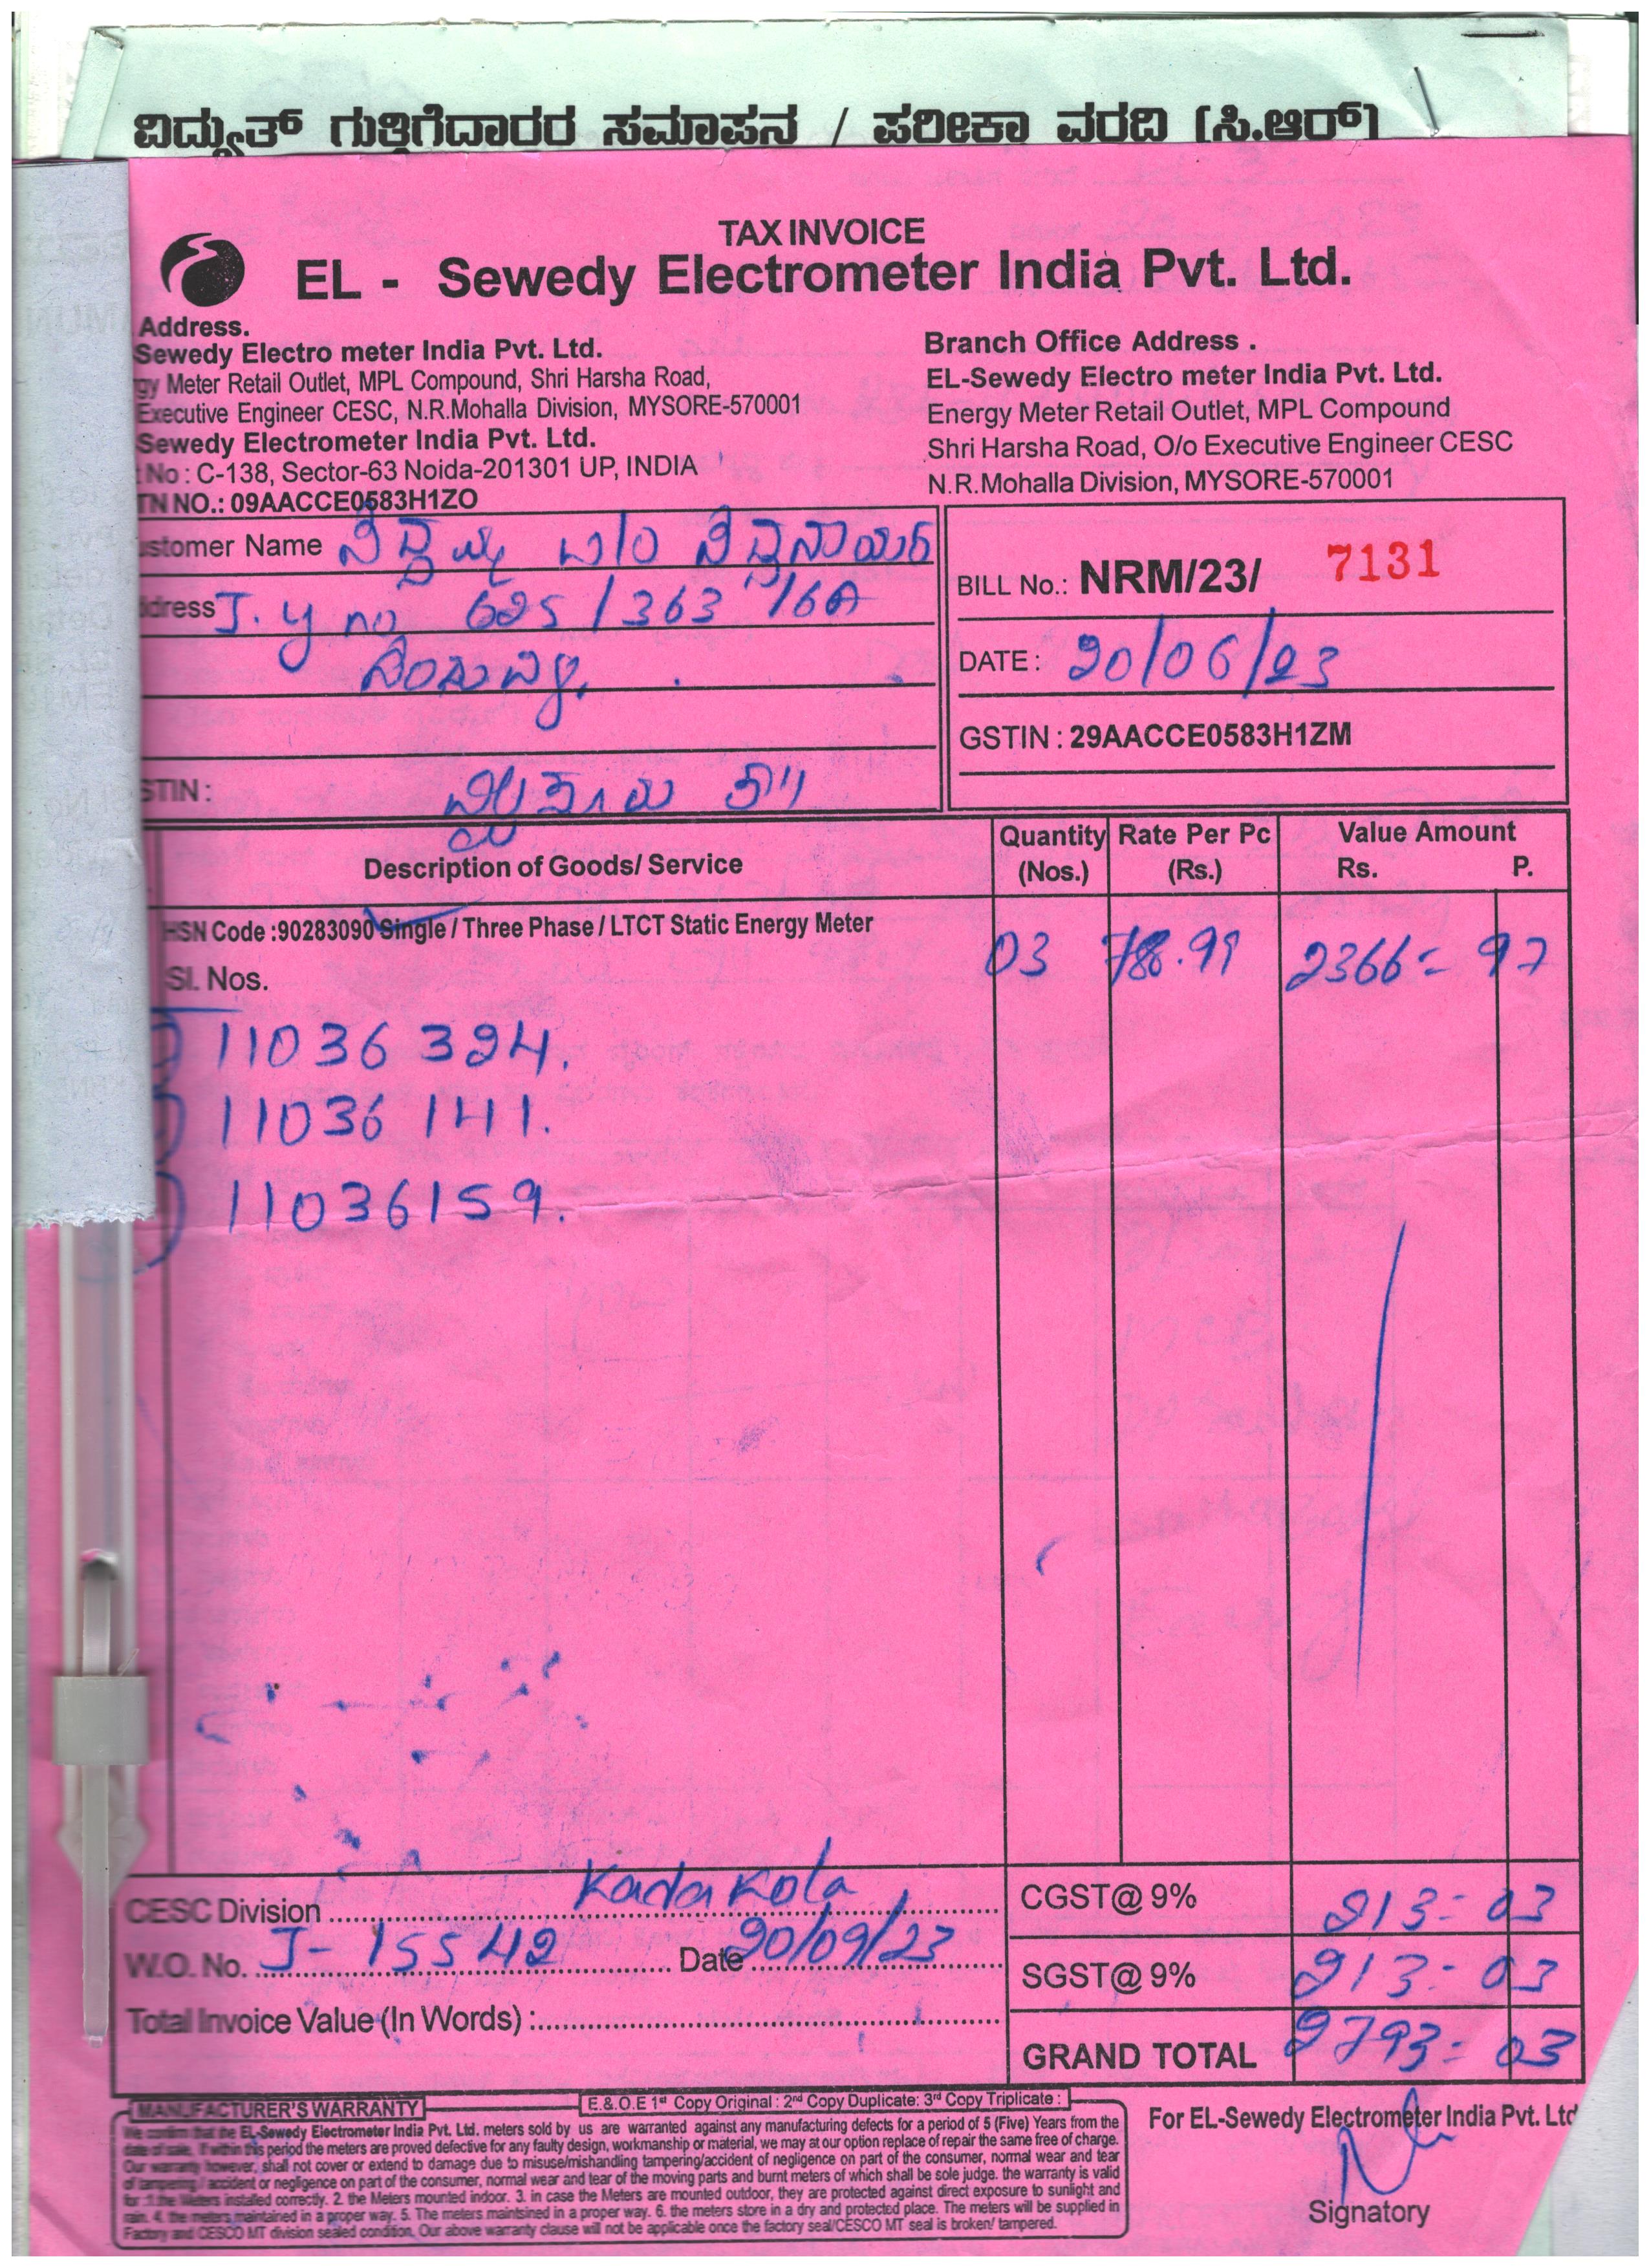 ವಿದ್ಯುತ್ ಗುತ್ತಿಗೆದಾರರ ಸಮಾಪನ / ಪರೀಕಾ ವರದಿ (ಸಿ.ಆರ್)
TAX INVOICE
EL - Sewedy Electrometer India Pvt. Ltd.
Address.
Sewedy Electro meter India Pvt. Ltd.
gy Meter Retail Outlet, MPL Compound, Shri Harsha Road,
Executive Engineer CESC, N.R.Mohalla Division, MYSORE-570001
Sewedy Electrometer India Pvt. Ltd.
No : C-138, Sector-63 Noida-201301 UP, INDIA
TN NO.: 09AACCE0583H1ZO
Branch Office Address .
EL-Sewedy Electro meter India Pvt. Ltd.
Energy Meter Retail Outlet, MPL Compound
Shri Harsha Road, O/o Executive Engineer CESC
N.R.Mohalla Division, MYSORE-570001
ustomer Name
ddress J. y no 625 / 363 /16A
STIN :
BILL No.: NRM/23/ 7131
DATE : 20/06/23
GSTIN : 29AACCE0583H1ZM
Description of Goods/ Service
Quantity (Nos.)
Rate Per Pc (Rs.)
Value Amount
Rs. P.
HSN Code :90283090 Single / Three Phase / LTCT Static Energy Meter
03 788.99 2366= 97
Sl. Nos.
11036 324.
11036 141.
11036159.
CESC Division Kadakola
W.O. No. J- 15542 Date 20/09/23
Total Invoice Value (In Words) :
CGST@ 9% 213= 03
SGST@ 9% 213= 03
GRAND TOTAL 2793= 03
MANUFACTURER'S WARRANTY
E.& O.E 1st Copy Original : 2nd Copy Duplicate: 3rd Copy Triplicate :
We confirm that the EL-Sewedy Electrometer India Pvt. Ltd. meters sold by us are warranted against any manufacturing defects for a period of 5 (Five) Years from the
date of sale. If within this period the meters are proved defective for any faulty design, workmanship or material, we may at our option replace of repair the same free of charge.
Our warranty however, shall not cover or extend to damage due to misuse/mishandling tampering/accident of negligence on part of the consumer, normal wear and tear
of tampering / accident or negligence on part of the consumer, normal wear and tear of the moving parts and burnt meters of which shall be sole judge. the warranty is valid
for :1.the Meters installed correctly. 2. the Meters mounted indoor. 3. in case the Meters are mounted outdoor, they are protected against direct exposure to sunlight and
rain. 4. the meters maintained in a proper way. 5. The meters maintsined in a proper way. 6. the meters store in a dry and protected place. The meters will be supplied in
Factory and CESCO MT division sealed condition, Our above warranty clause will not be applicable once the factory seal/CESCO MT seal is broken/ tampered.
For EL-Sewedy Electrometer India Pvt. Ltd
Signatory